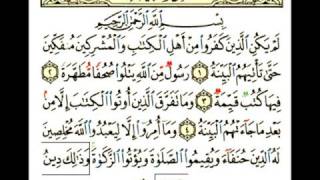 بِسْمِ اللَّهِ الرَّحْمَٰنِ الرَّحِيمِ
لَمْ يَكُنِ الَّذِينَ كَفَرُوا مِنْ أَهْلِ الْكِتَابِ وَالْمُشْرِكِينَ مُنفَكِّينَ
حَتَّىٰ تَأْتِيَهُمُ الْبَيِّنَةُ ١ رَسُولٌ مِّنَ اللَّهِ يَتْلُو صُحُفًا مُّطَهَّرَةً ٢
فِيهَا كُتُبٌ قَيِّمَةٌ ٣ وَمَا تَفَرَّقَ الَّذِينَ أُوتُوا الْكِتَابَ إِلَّا مِن
بَعْدِ مَا جَاءَتْهُمُ الْبَيِّنَةُ ٤ وَمَا أُمِرُوا إِلَّا لِيَعْبُدُوا اللَّهَ مُخْلِصِينَ
لَهُ الدِّينَ حُنَفَاءَ وَيُقِيمُوا الصَّلَوٰةَ وَيُؤْتُوا الزَّكَوٰةَ وَذَٰلِكَ دِينُ